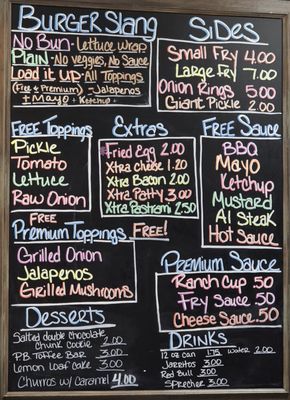 Burger Slang
No Bun - Lettuce Wrap
Plain - No veggies, No Sauce
Load it Up - All Toppings
(Free + Premium) - Jalapenos
+ Mayo - + Ketchup
Sides
Small Fry 4.00
Large Fry 7.00
Onion Rings 5.00
Giant Pickle 2.00
Free Toppings
Pickle
Tomato
Lettuce
Raw Onion
Extras
Fried Egg 2.00
Xtra Cheese 1.20
Xtra Bacon 2.00
Xtra Patty 3.00
Xtra Pastrami 2.50
Free Sauce
BBQ
Mayo
Ketchup
Mustard
A1 Steak
Hot Sauce
Free
Premium Toppings Free!
Grilled Onion
Jalapenos
Grilled Mushrooms
Premium Sauce
Ranch Cup .50
Fry Sauce .50
Cheese Sauce .50
Desserts
Salted double chocolate
Chunk Cookie 2.00
PB Toffee Bar 3.00
Lemon Loaf Cake 3.00
Churros w/ Caramel 4.00
Drinks
12 oz can 1.75 Water 2.00
Jarritos 3.00
Red Bull 3.00
Sprecher 3.00